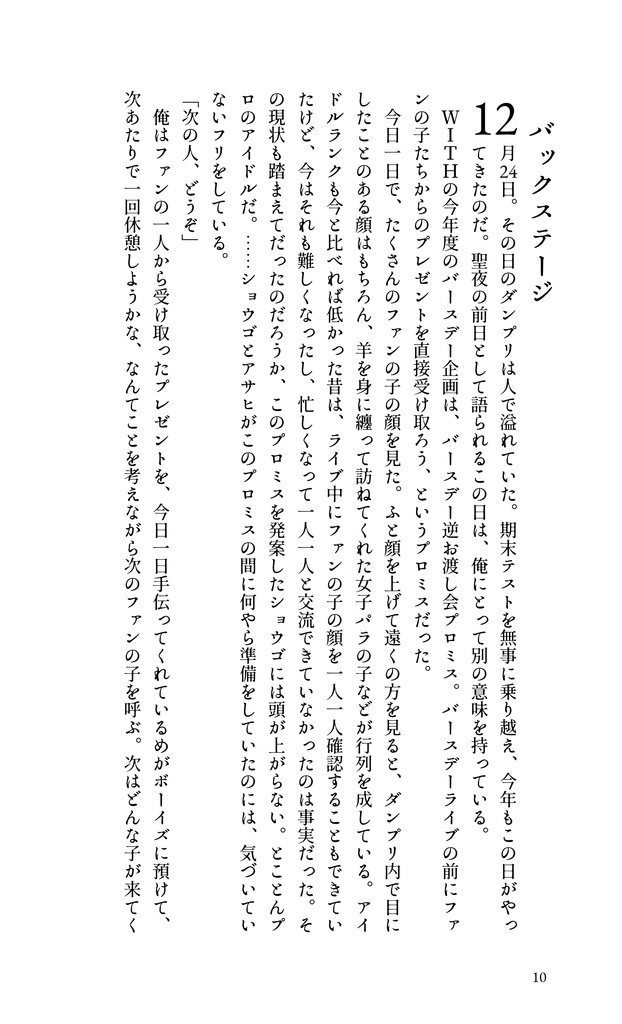 バックステージ
12月24日。その日のダンプリは人で溢れていた。期末テストを無事に乗り越え、今年もこの日がやっ
てきたのだ。聖夜の前日として語られるこの日は、俺にとって別の意味を持っている。
WITHの今年度のバースデー企画は、バースデー逆お渡し会プロミス。バースデーライブの前にファ
ンの子たちからのプレゼントを直接受け取ろう、というプロミスだった。
今日一日で、たくさんのファンの子の顔を見た。ふと顔を上げて遠くの方を見ると、ダンプリ内で目に
したことのある顔はもちろん、羊を身に纏って訪ねてくれた女子パラの子などが行列を成している。アイ
ドルランクも今と比べれば低かった昔は、ライブ中にファンの子の顔を一人一人確認することもできてい
たけど、今はそれも難しくなったし、忙しくなって一人一人と交流できていなかったのは事実だった。そ
の現状も踏まえてだったのだろうか、このプロミスを発案したショウゴには頭が上がらない。とことんプ
ロのアイドルだ。……ショウゴとアサヒがこのプロミスの間に何やら準備をしていたのには、気づいてい
ないフリをしている。
「次の人、どうぞ」
俺はファンの一人から受け取ったプレゼントを、今日一日手伝ってくれているめがボーイズに預けて、
次あたりで一回休憩しようかな、なんてことを考えながら次のファンの子を呼ぶ。次はどんな子が来てく
10